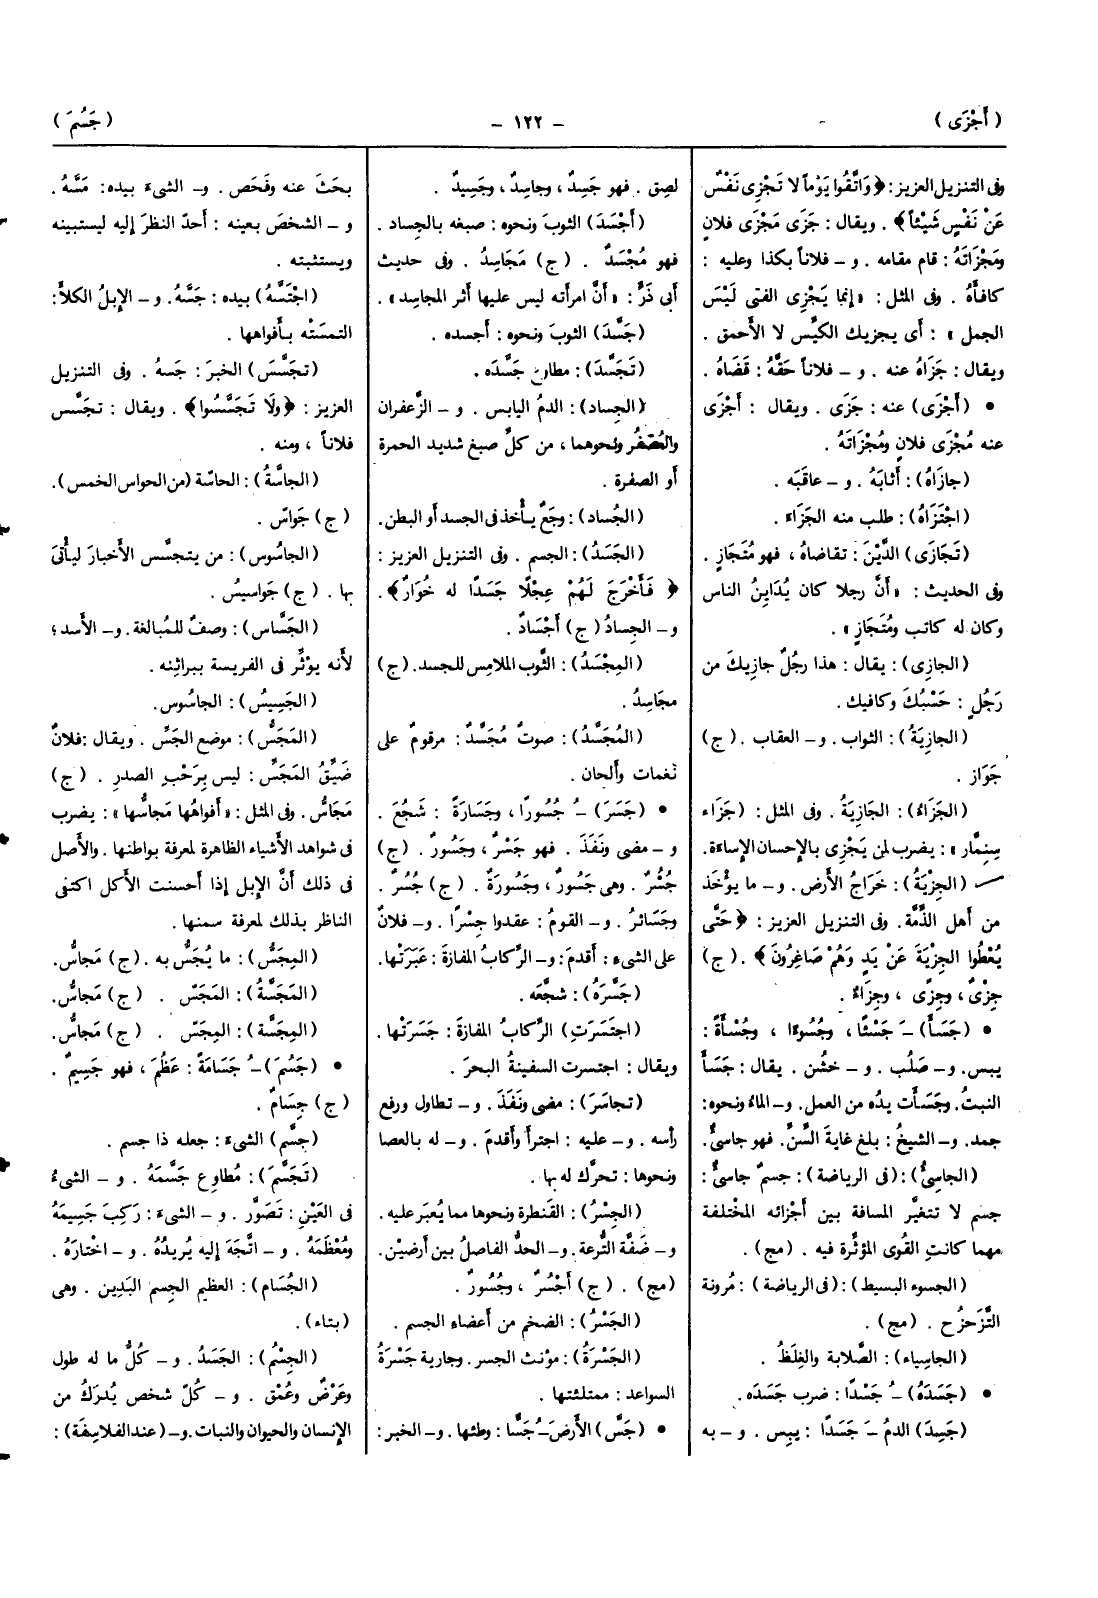 ( أَجْزَى )
– ١٢٢ –
( جَسُمَ )
وفى التنزيل العزيز : ﴿ وَاتَّقُوا يَوْماً لا تَجْزِى نَفْسٌ
عَنْ نَفْسٍ شَيْئاً ﴾ . ويقال : جَزَى مَجْزَى فلانٍ
ومَجْزَاتَهُ : قام مقامه . و – فلاناً بكذا وعليه :
كافأهُ . وفى المثل : « إنما يَجْزِى الفتى لَيْسَ
الجمل » : أى يجزيك الكيِّس لا الأحمق .
ويقال : جَزَاهُ عنه . و – فلاناً حَقَّهُ : قَضَاهُ .
• (أَجْزَى) عنه : جَزَى . ويقال : أَجْزَى
عنه مُجْزَى فلانٍ ومُجْزَاتَهُ .
(جازاهُ) : أَثابَهُ . و – عاقَبَه .
(اجْتَزَاهُ) : طلب منه الجَزَاءَ .
(تَجَازَى) الدَّيْنَ : تقاضاهُ ، فهو مُتَجَازٍ .
وفى الحديث : « أنَّ رجلا كان يُدَايِنُ الناس
وكان له كاتب ومُتَجَازٍ » .
(الجازِى) : يقال : هذا رجُلٌ جازِيكَ من
رَجُلٍ : حَسْبُكَ وكافيك .
(الجازِيَةُ) : الثواب . و – العقاب . (ج)
جَوَازٍ .
(الجَزَاءُ) : الجَازِيَةُ . وفى المثل : (جَزَاء
سِنِمَّار » : يضرب لمن يَجْزِى بالإحسان الإساءة .
(الجِزْيَةُ) : خَرَاجُ الأَرض . و – ما يؤْخَذ
من أهل الذِّمَّة . وفى التنزيل العزيز : ﴿ حَتَّى
يُعْطُوا الجِزْيَةَ عَنْ يَدٍ وَهُمْ صَاغِرُونَ ﴾ . (ج)
جِزْىٌ ، وجِزًى ، وجِزَاءٌ .
• (جَسَأَ) –َ جَسْئًا ، وجُسُوءًا ، وجُسْأَةً :
يبس . و – صَلُب . و – خشُن . يقال : جَسَأَ
النبتُ . وجَسَأَت يدُه من العمل . و – الماءُ ونحوه :
جمد . و – الشيخُ : بلغ غايةَ السِّنِّ . فهو جاسئٌ .
(الجاسِئُ) : (فى الرياضة) : جسمٌ جاسئٌ :
جسم لا تتغيَّر المسافة بين أَجْزائه المختلفة
مهما كانتِ القُوى المؤثِّرة فيه . (مج) .
(الجسوء البسيط) : (فى الرياضة) : مُرونة
التَّزَحزُح . (مج) .
(الجاسِياء) : الصَّلابة والغِلَظُ .
• (جَسَدَهُ) –ُ جَسْدًا : ضرب جَسَدَه .
(جَسِدَ) الدمُ –َ جَسَدًا : يبِس . و – به
لصِق . فهو جَسِدٌ ، وجاسِدٌ ، وجَسِيدٌ .
(أَجْسَدَ) الثوبَ ونحوه : صبغه بالجِساد .
فهو مُجْسَدٌ . (ج) مَجَاسِدُ . وفى حديث
أبى ذَرٍّ : « أنَّ امرأته ليس عليها أثر المجاسد » .
(جَسَّدَ) الثوبَ ونحوه : أجسده .
(تَجَسَّدَ) : مطاوع جَسَّدَه .
(الجِساد) : الدمُ اليابس . و – الزَّعفران
والعُصْفُر ونحوهما ، من كلِّ صبغ شديد الحمرة
أو الصفرة .
(الجُساد) : وجَعٌ يأخذ فى الجسد أو البطن .
(الجَسَدُ) : الجسم . وفى التنزيل العزيز :
﴿ فَأَخْرَجَ لَهُمْ عِجْلًا جَسَدًا له خُوَارٌ ﴾ .
و – الجِسادُ (ج) أَجْسَادٌ .
(المِجْسَدُ) : الثَّوب الملامِس للجسد . (ج)
مجَاسِدُ .
(المُجَسَّدُ) : صوتٌ مُجَسَّدٌ : مرقومٌ على
نَغمات وألحان .
• (جَسَرَ) –ُ جُسُورًا ، وجَسَارَةً : شَجُعَ .
و – مضى ونَفَذَ . فهو جَسْرٌ ، وجَسُورٌ . (ج)
جُسُرٌ . وهى جَسُورٌ ، وجَسُورَةٌ . (ج) جُسُرٌ .
وجَسَائرُ . و – القومُ : عقدوا جِسْرًا . و – فلانٌ
على الشىء : أقدمَ : و – الرِّكابُ المفازةَ : عَبَرَتْها .
(جَسَّرَهُ) : شجَّعَه .
(اجتَسَرَتِ) الرِّكابُ المفازةَ : جَسَرَتْها .
ويقال : اجتسرت السفينةُ البحرَ .
(تجاسَرَ) : مضى ونَفَذَ . و – تطاول ورفع
رأسه . و – عليه : اجترأَ وأقدمَ . و – له بالعصا
ونحوها : تحرَّك له بها .
(الجِسْرُ) : القَنطرة ونحوها مما يُعبَر عليه .
و – ضَفَّة التُّرعة . و – الحدُّ الفاصلُ بين أرضيْن .
(مج) . (ج) أَجْسُرٌ ، وجُسُورٌ .
(الجَسْرُ) : الضخم من أعضاء الجسم .
(الجَسْرَةُ) : مؤنث الجسر . وجارية جَسْرَةُ
السواعد : ممتلئتها .
• (جَسَّ) الأَرضَ –ُ جَسًّا : وطئها . و – الخبر :
بحَثَ عنه وفَحَص . و – الشىءَ بيده : مَسَّهُ .
و – الشخصَ بعينه : أحدَّ النظرَ إليه ليستبينه
ويستثبته .
(اجْتَسَّهُ) بيده : جَسَّهُ . و – الإبلُ الكلأَ :
التمسَتْه بأفواهها .
(تجَسَّسَ) الخبرَ : جَسهُ . وفى التنزيل
العزيز : ﴿ ولَا تَجَسَّسُوا ﴾ . ويقال : تجَسَّس
فلاناً ، ومنه .
(الجاسَّةُ) : الحاسّة (من الحواس الخمس) .
(ج) جَواسّ .
(الجاسُوس) : من يتجسَّس الأخبارَ ليأتىَ
بها . (ج) جَواسيسُ .
(الجَسَّاس) : وصفٌ للمُبالغة . و – الأسد ؛
لأنه يؤثِّر فى الفريسة ببراثِنه .
(الجَسِيسُ) : الجاسُوس .
(المَجَسُّ) : موضع الجَسِّ . ويقال : فلانٌ
ضَيِّقُ المَجَسِّ : ليس بِرَحْبِ الصدرِ . (ج)
مَجَاسُّ . وفى المثل : « أفواهُها مَجاسُّها » : يضرب
فى شواهد الأشياء الظاهرة لمعرفة بواطنها . والأصل
فى ذلك أنَّ الإبل إذا أحسنت الأكل اكتفى
الناظر بذلك لمعرفة سمنها .
(المِجَسُّ) : ما يُجَسُّ به . (ج) مَجاسُّ .
(المَجَسَّةُ) : المَجَسّ . (ج) مَجاسُّ .
(المِجَسَّة) : المِجَسّ . (ج) مَجاسُّ .
• (جَسُمَ) –ُ جَسَامَةً : عَظُمَ ، فهو جَسِيمٌ .
(ج) جِسَامٌ .
(جسَّم) الشىءَ : جعله ذا جسم .
(تَجَسَّمَ) : مُطاوع جَسَّمَهُ . و – الشىءُ
فى العَيْنِ : تَصَوَّر . و – الشىءَ : رَكِبَ جَسِيمَهُ
ومُعْظَمَهُ . و – اتَّجَهَ إليه يُريدُهُ . و – اختارَهُ .
(الجُسَام) : العظيم الجِسم البَدِين . وهى
(بتاء) .
(الجِسْمُ) : الجَسَدُ . و – كُلُّ ما له طول
وعَرْضٌ وعُمْق . و – كُلّ شخص يُدرَكُ من
الإنسان والحيوان والنبات . و – (عند الفلاسِفَة) :